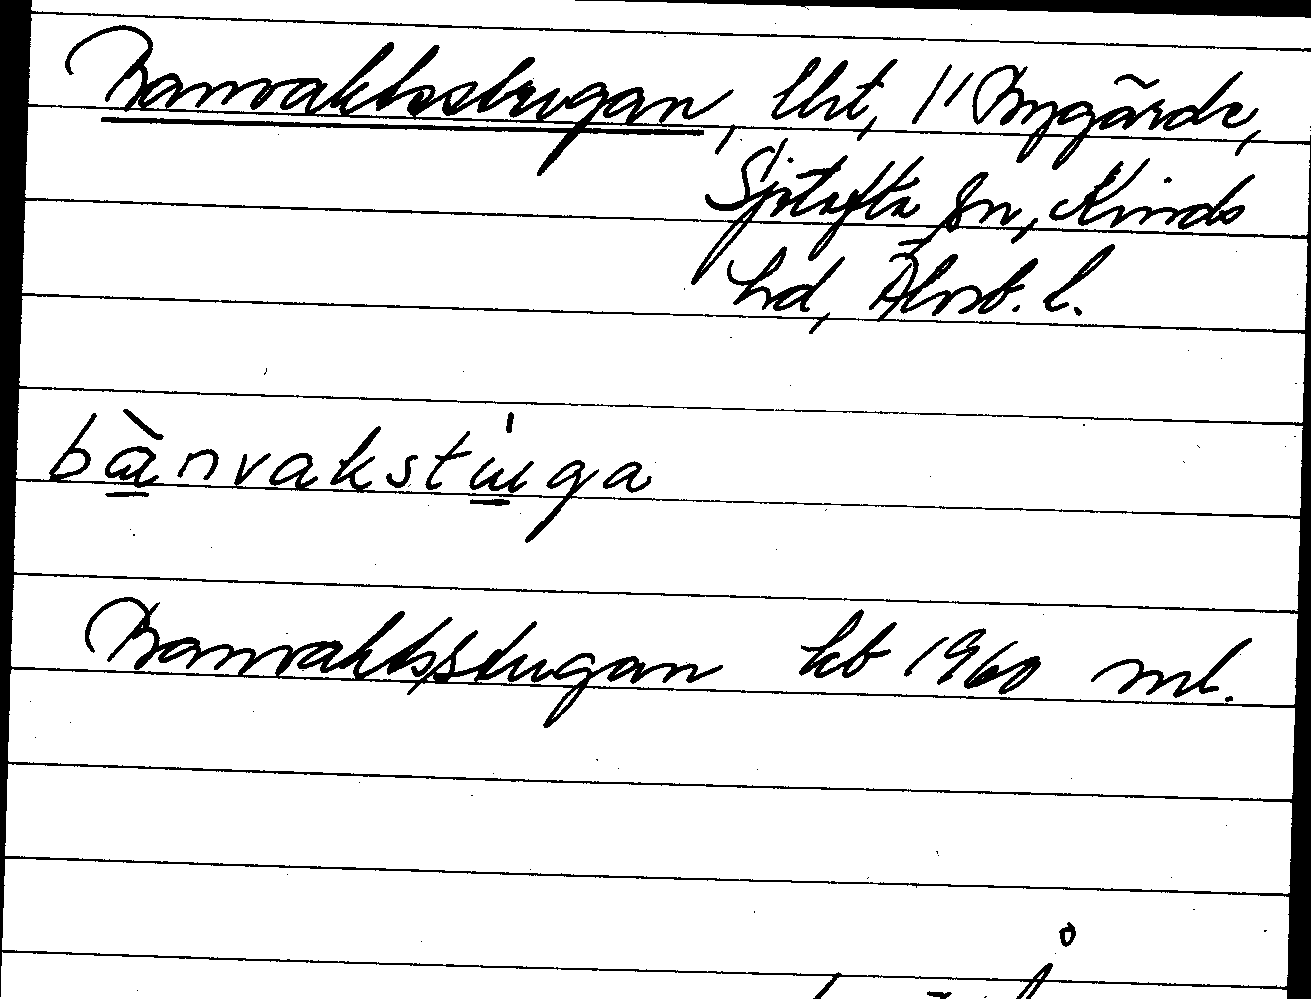 Banvaktsstugan, lht, 1/1 Bygärde,
Sjötofta sn, Kinds
hd, Älvsb. l.
bànvakstuga
Banvaktsstugan kb 1960 ml.